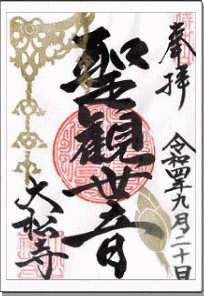 奉拝
令和四年九月二十日
聖観世音
大松寺